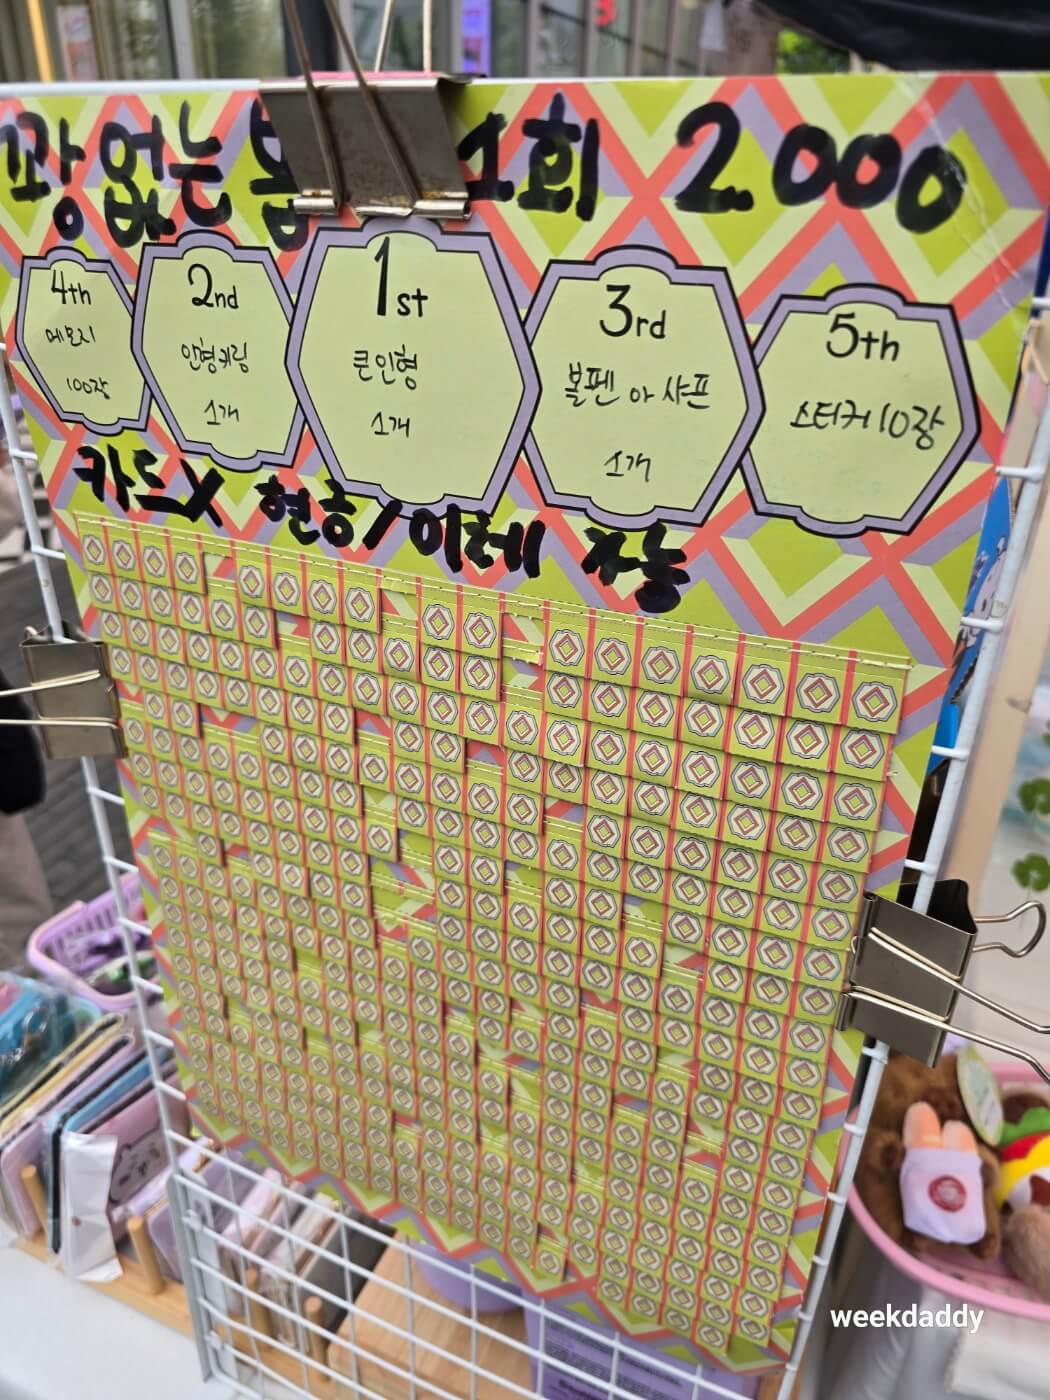 꽝 없는 1회 2.000
4th
메모지
100장
2nd
인형키링
1개
1st
큰인형
1개
3rd
볼펜 or 샤프
1개
5th
스티커10장
카드X 현금/이체
weekdaddy